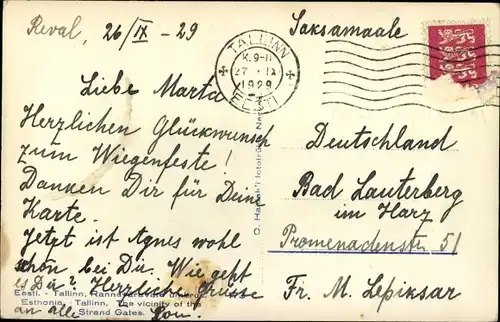 Reval, 26/IX - 29
Liebe Marta
Herzlichen Glückwunsch
zum Wiegenfeste!
Danken Dir für Deine
Karte.
Jetzt ist Agnes wohl
schön, bei Dir. Wie geht
es Dir? Herzliche Grüsse
an alle
Eesti. - Tallinn, Rannaväravate
Esthonia, Tallinn, The vicinity of the
Strand Gates.
Saksamaale
TALLINN
K. 9-11
27 . IX
1929
EESTI
Deutschland
Bad Lauterberg
im Harz
Promenadenstr 51
Fr. M. Lepiksar